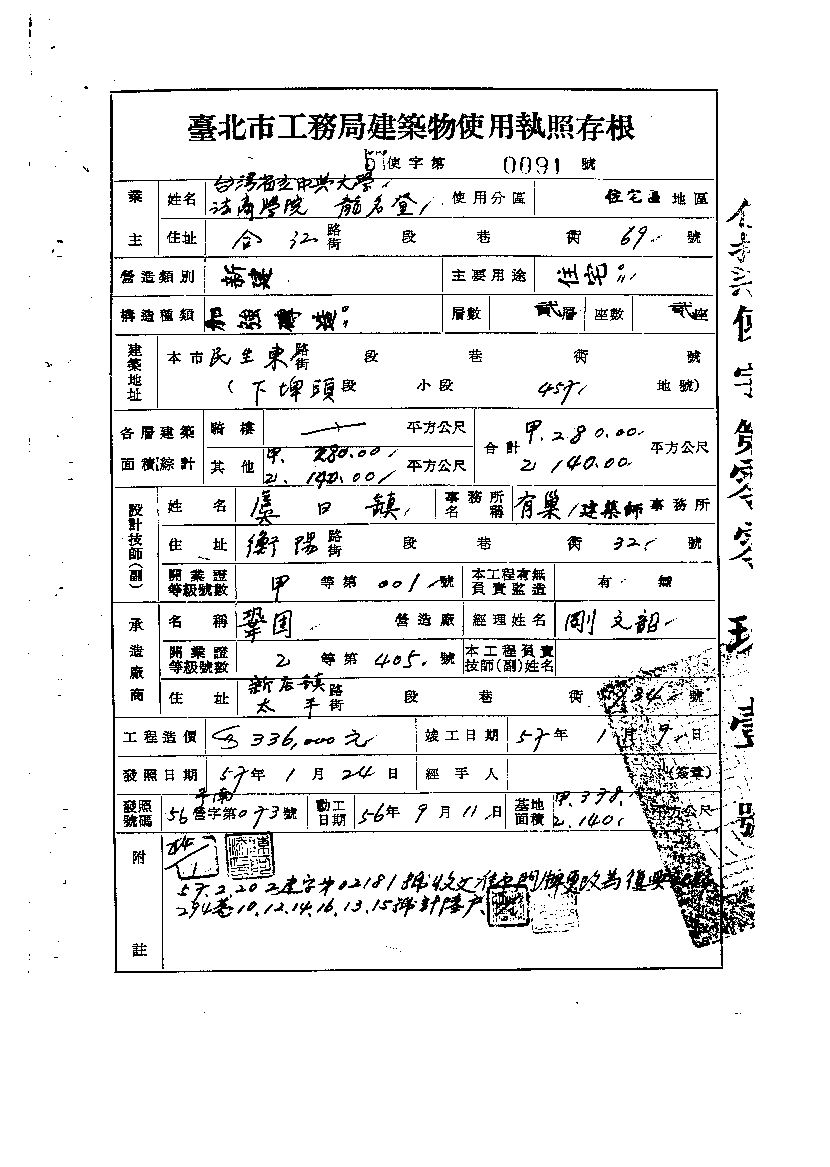 臺北市工務局建築物使用執照存根
57 使字第 0091 號
業主 姓名 台灣省立中興大學 法商學院 使用分區 住宅區 地區
住址 合江 路街 段 巷 衖 69 號
營造類別 新建 主要用途 住宅
構造種類 加強磚造 層數 貳層 座數 貳座
建築地址 本市民生東路街 段 巷 衖 號
(下埤頭段 小段 457 地號)
各層建築面積綜計 騎樓 平方公尺 合計 甲.280.00 乙140.00 平方公尺
其他 甲.280.00 乙.140.00 平方公尺
設計技師(副) 姓名 虞日鎮 事務所名稱 有巢建築師事務所
住址 衡陽 路街 段 巷 衖 32 號
開業證等級號數 甲 等第 001 號 本工程有無負責監造 有 無
承造廠商 名稱 鞏固 營造廠 經理姓名 剛文韶
開業證等級號數 乙 等第 405 號 本工程負責技師(副)姓名
住址 新店鎮太平 路街 段 巷 衖 34 號
工程造價 336,000元 竣工日期 57年1月9日
發照日期 57年1月24日 經手人 (簽章)
發照號碼 56 營字第073號 動工日期 56年9月11日 基地面積 甲.338. 乙.140. 平方公尺
附註
24/1
57.2.20 建字第02181號收文 門牌更改為復興
294巷10.12.14.16.13.15號
使字第零零玖壹號